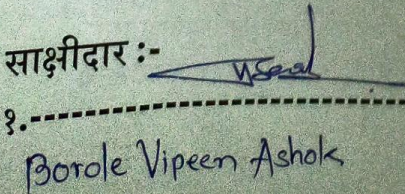 साक्षीदार :-
१.--------------------------------
Borole Vipeen Ashok